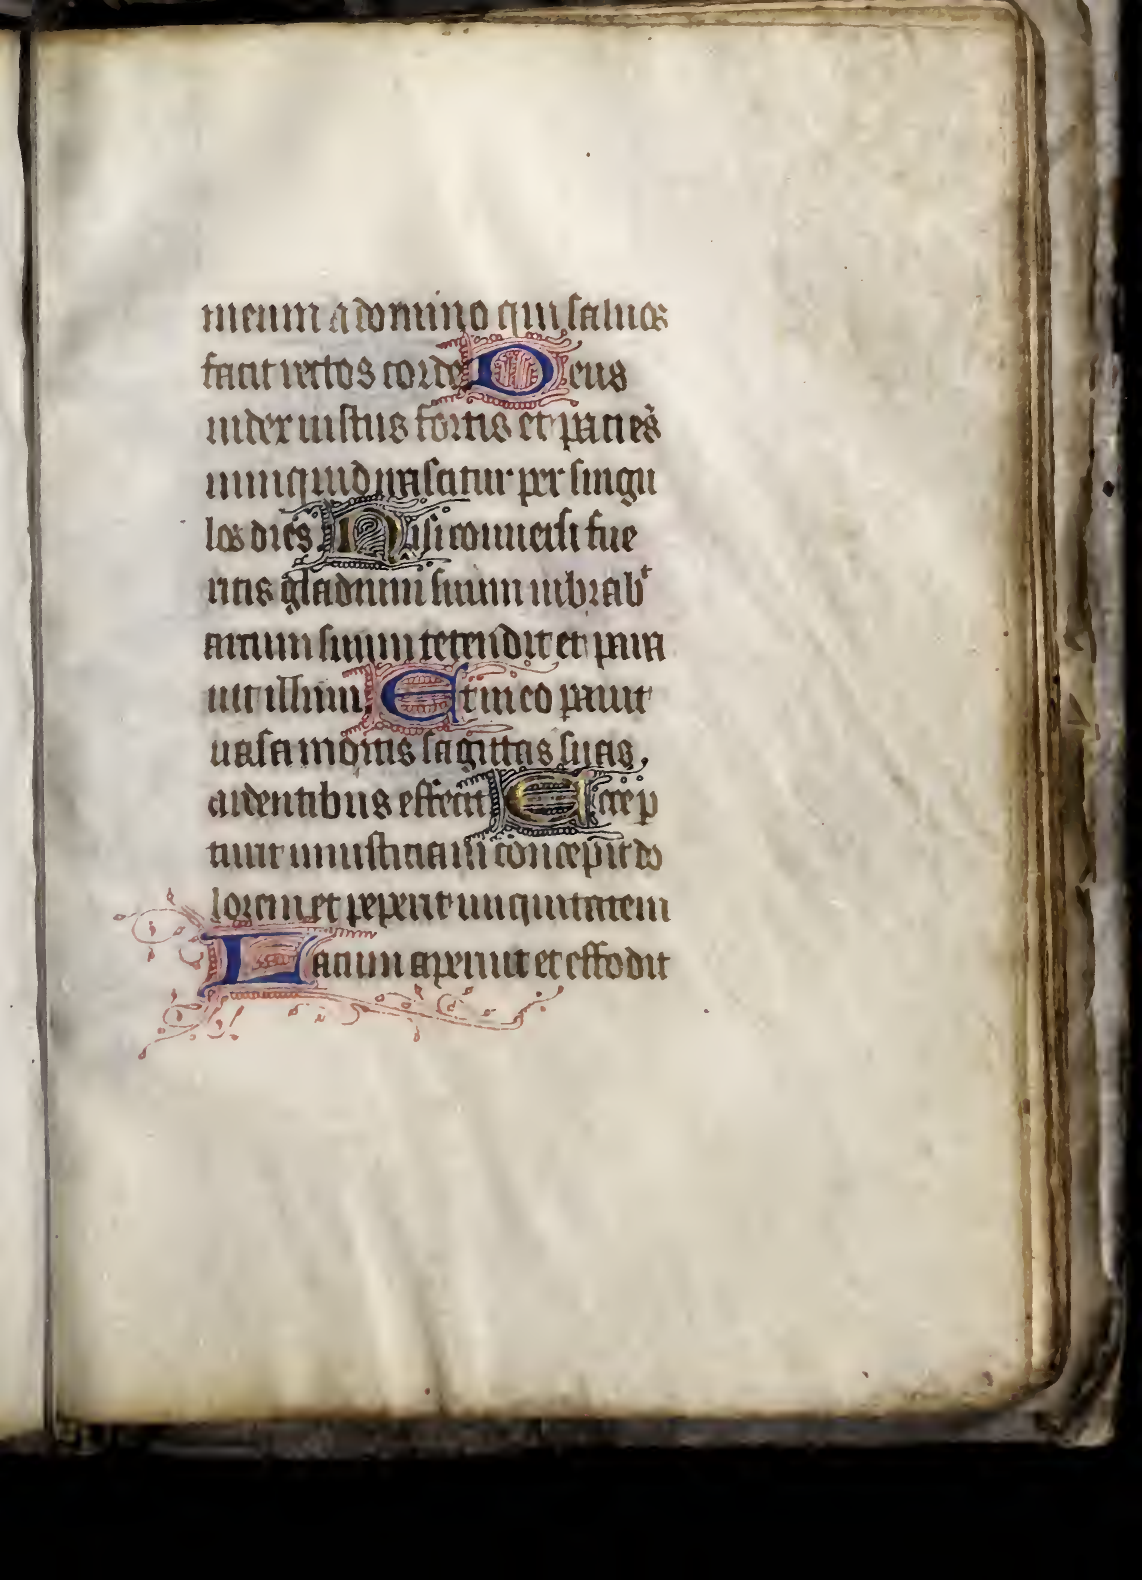 meum a domino qui saluos
facit rectos corde Deus
iudex iustus fortis et paciēs
nunquid irascitur per singu
los dies Nisi conuersi fue
ritis gladium suum uibrabᵗ
arcum suum tetendit et para
uit illum Et in eo parauit
uasa mortis sagittas suas
ardentibus effecit Ecce p
turiit iniusticiam concepit do
lorem et peperit iniquitatem
Lacum aperuit et effodit